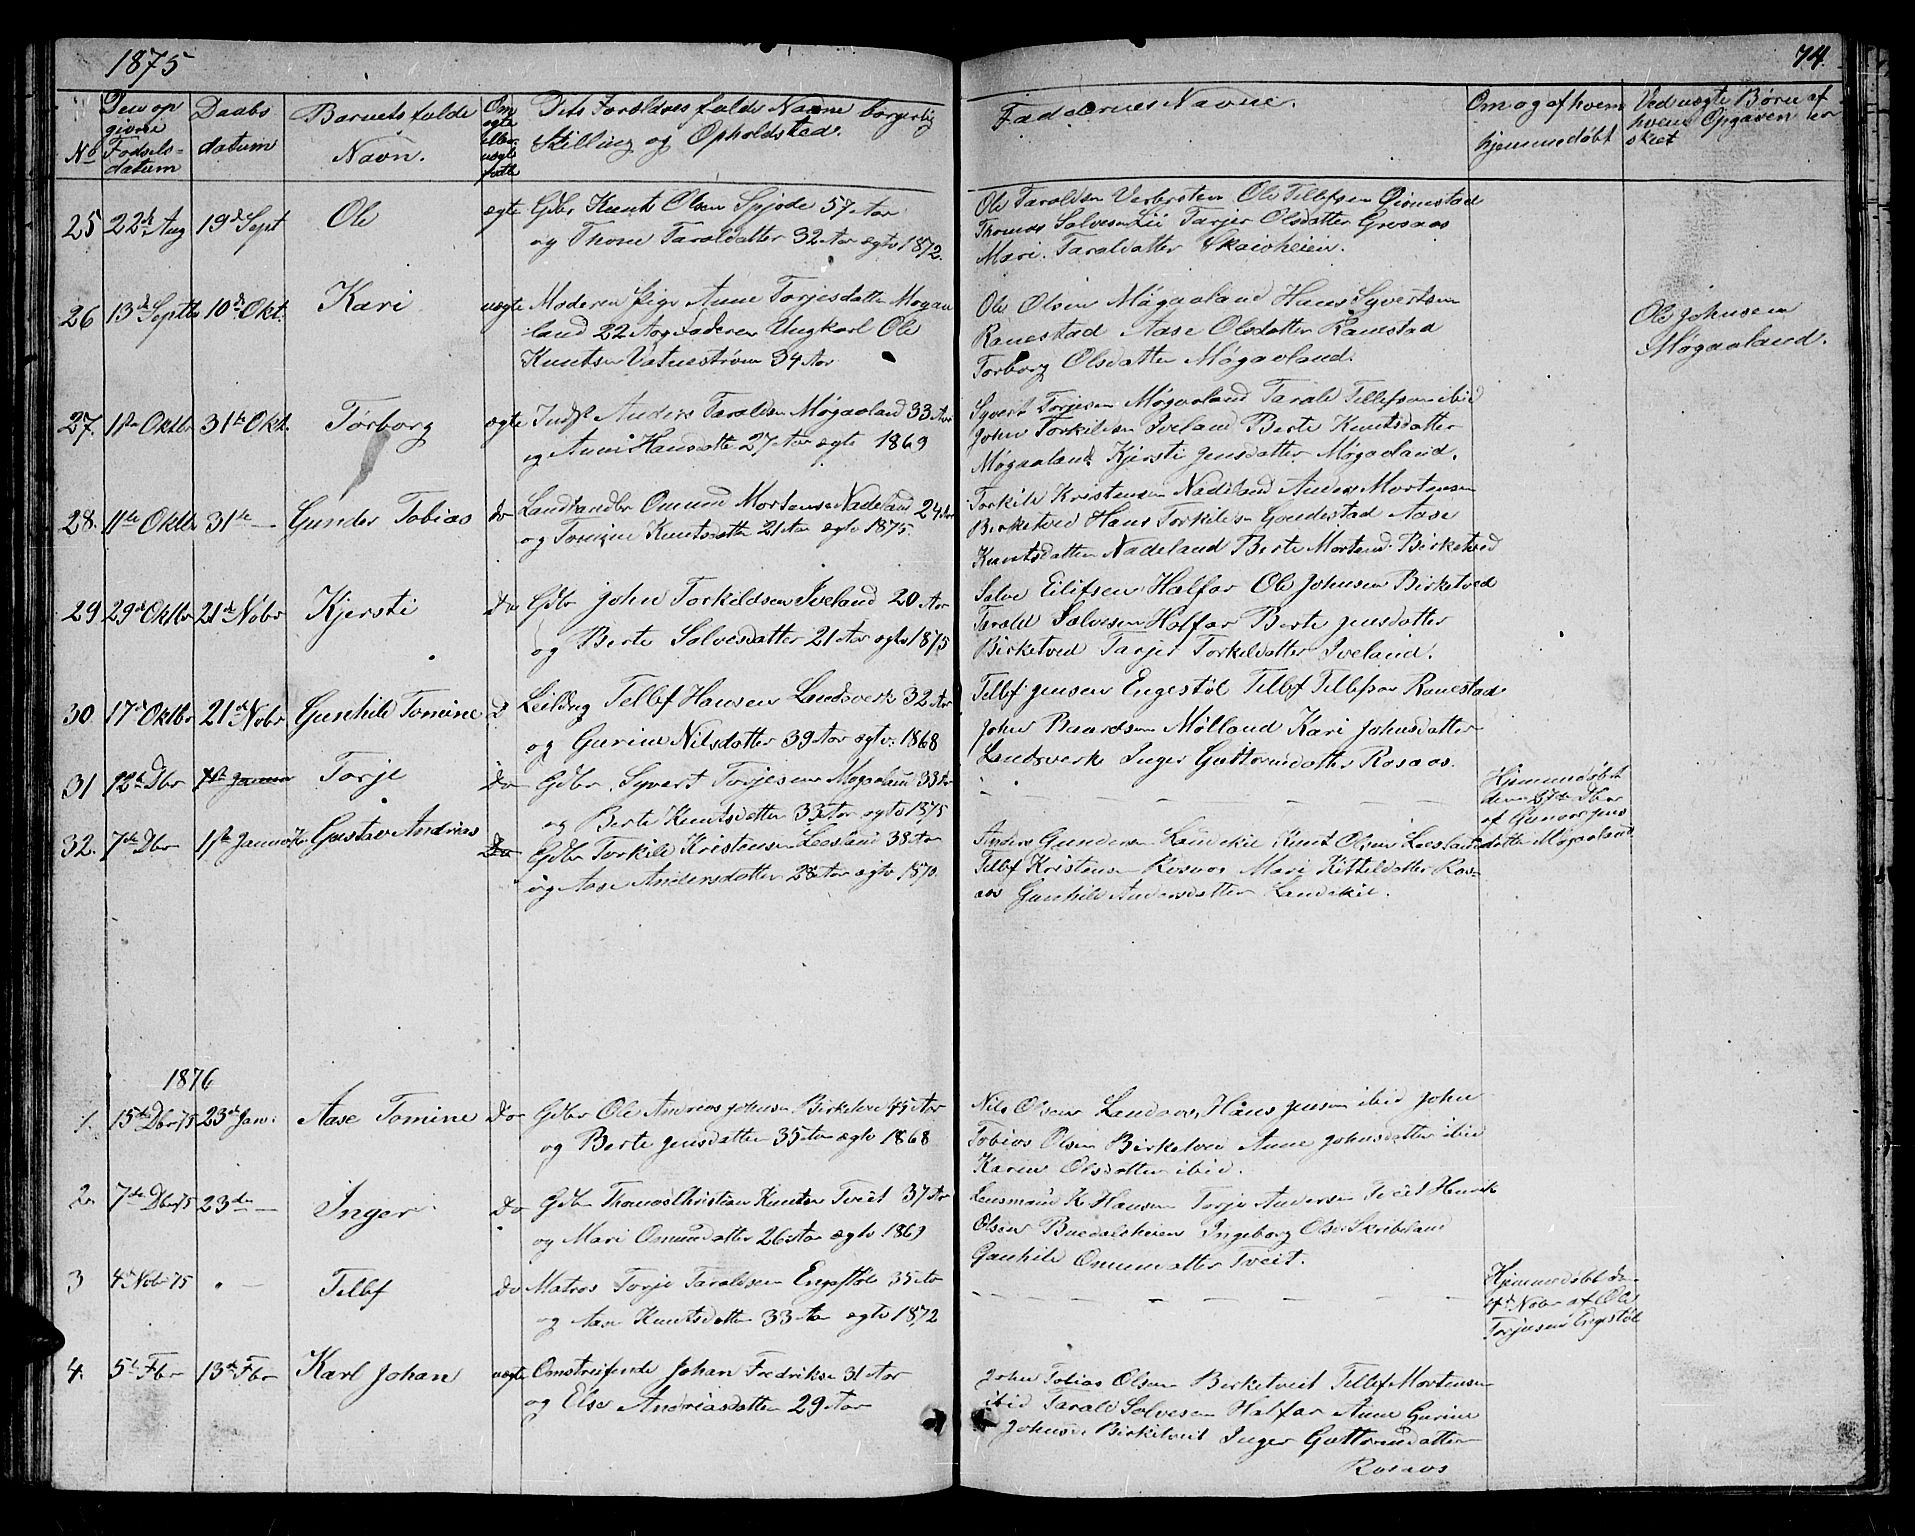 1875
74
No
Den op
givne
Fødsels-
datum
Daabs
datum
Barnets fulde
Navn.
Om
ægte
eller
uægte
født
Dets Forældres fulde Navne borgerlig
Stilling og Opholdsted.
Faddernes Navne.
Om og af hvem
hjemmedøbt
Ved uægte Børn af
hvem Opgaven er
skeet
25 22de Aug 19de Sept Ole ægte Gdbr Knut Olsen Spjode 57 Aar
og Thone Taraldatter 32 Aar ægtv 1872.
Ole Taraldsen Verbersten Ole Tellefsen Gimestad
Thomas Salvesen Lii Tarjer Olsdatter Grosaas
Mari Taraldatter Skaiaheien.
26 13de Septb 10de Okt. Kari uægte Moderen Pige Anne Torjesdatter Mogaa
land 22 Aar Faderen Ungkarl Ole
Knutsen Vatnestrøm 34 Aar
Ole Olsen Møgaaland Hans Syvertsen
Ranestad Aase Olsdatter Ranestad
Torborg Olsdatter Møgaaland.
Ole Johnsen
Møgaaland.
27. 11te Oktbr 31te Okt. Torborg ægte Indst Anders Taraldsen Møgaaland 33 Aar
og Anne Hansdatter 27 Aar ægtv 1869
Syvert Torjesen Møgaaland Tarald Tellefsen ibid
John Torkildsen Iveland Berte Knutsdatter
Møgaaland Kjersti Jensdatter Møgaaland.
28. 11te Oktbr 31te — Gunder Tobias do Landhandler Omund Mortensen Nadeland 24 Aar
og Tomine Knutsdatter 21 Aar ægtv 1875.
Torkild Kristensen Nadeland Anders Mortensen
Birketved Hans Torkildsen Goudestad Aase
Knutsdatter Nadeland Berte Mortensd: Birketved
29 29de Oktbr 21de Nobr Kjersti do Gdbr John Torkildsen Iveland 20 Aar
og Berte Salvesdatter 21 Aar ægtv 1875
Salve Eilifsen Halfar Ole Johnsen Birketved
Tarald Salvesen Halfar Berte Jensdatter
Birketved Tarjer Torkeldatter Iveland.
30 17de Oktbr 21de Nobr Gunhild Tomine D Leildng Tellef Hansen Landsverk 32 Aar
og Gurine Nilsdatter 39 Aar ægtv: 1868
Tellef Jensen Engestøl Tellef Tellefsen Ranestad
John Baardsen Mølland Kari Johnsdatter
Landsverk Inger Guttormdatter Rosaas.
31 12te Dbr 1ste Januar Torje do Gdbr Syvert Torjesen Møgaaland 33 Aar
og Berte Knutsdatter 33 Aar ægtv 1875
Hjemmedøbt
den 17de Dbr
af Gunvor Jens
datter Mogaaland
32. 7de Dbr 1ste Januar Gustav Andrias do Gdbr Torkild Kristensen Loesland 38 Aar
og Aase Andersdatter 28 Aar ægtv 1870.
Anders Gundersen Landekil Knut Olsen Loesland
Tellef Kristensen Rosaas Mari Kitteldatter Ros-
aas Gunhild Andersdatter Landekil.
1876
1. 15de Dbr 75 23de Jan: Aase Tomine do Gdbr Ole Andrias Johnsen Birketved 45 Aar
og Berte Jensdatter 35 Aar ægtv 1868
Nils Olsen Landaas, Hans Jensen ibid John
Tobias Olsen Birketved Anne Johnsdatter ibid
Karen Olsdatter ibid.
2. 7de Dbr 75 23de — Inger do Gdbr Thomas Christian Knutsen Tveit 37 Aar
og Mari Omundatter 26 Aar ægtv 1869
Lensmand K. Hansen Torje Andersen Tveit Henrik
Olsen Buedalsheien Ingeborg Olsd Skribeland
Gunhild Omundatter Tveit.
3 4de Nobr 75 — Tellef do Matros Torje Taraldsen Engestøl 35 Aar
og Aase Knutsdatter 33 Aar ægtv 1872
Hjemmedøbt den
4de Nobr af Ole
Torjusen Engestøl
4. 5te Fbr 13de Fbr Karl Johan uægte Omstreifende Johan Fredriksen 31 Aar
og Else Andriasdatter 29 Aar
John Tobias Olsen Birketveit Tellef Mortensen
ibid Tarald Salvesen Halfar Anne Gurine
Johnsd: Birketveit Inger Guttormdatter
Rosaas